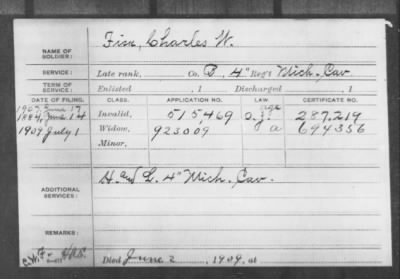 NAME OF SOLDIER: Fisk, Charles W.
SERVICE: Late rank, Co. D, 4" Reg't Mich. Cav.
TERM OF SERVICE: Enlisted , 1 Discharged , 1
DATE OF FILING. CLASS. APPLICATION NO. LAW. CERTIFICATE NO.
1907, June 17 age
1884, June 14 Invalid, 515,469 287,219
1909 July 1 Widow, 923009 a 694356
Minor,
ADDITIONAL SERVICES: H. and L. 4" Mich. Cav.
REMARKS:
Died June 2, 1909, at